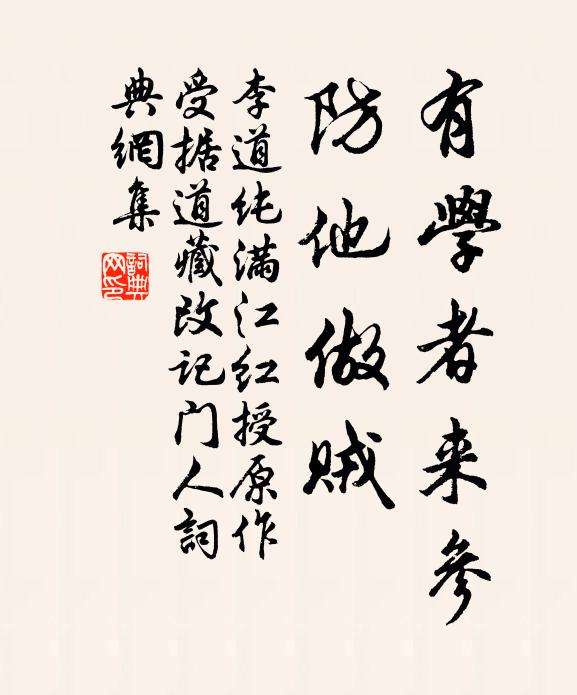 有學者来參
防他做贼
李道纯满江红授原作
受据道藏改记门人詞
典網集
詞典网印